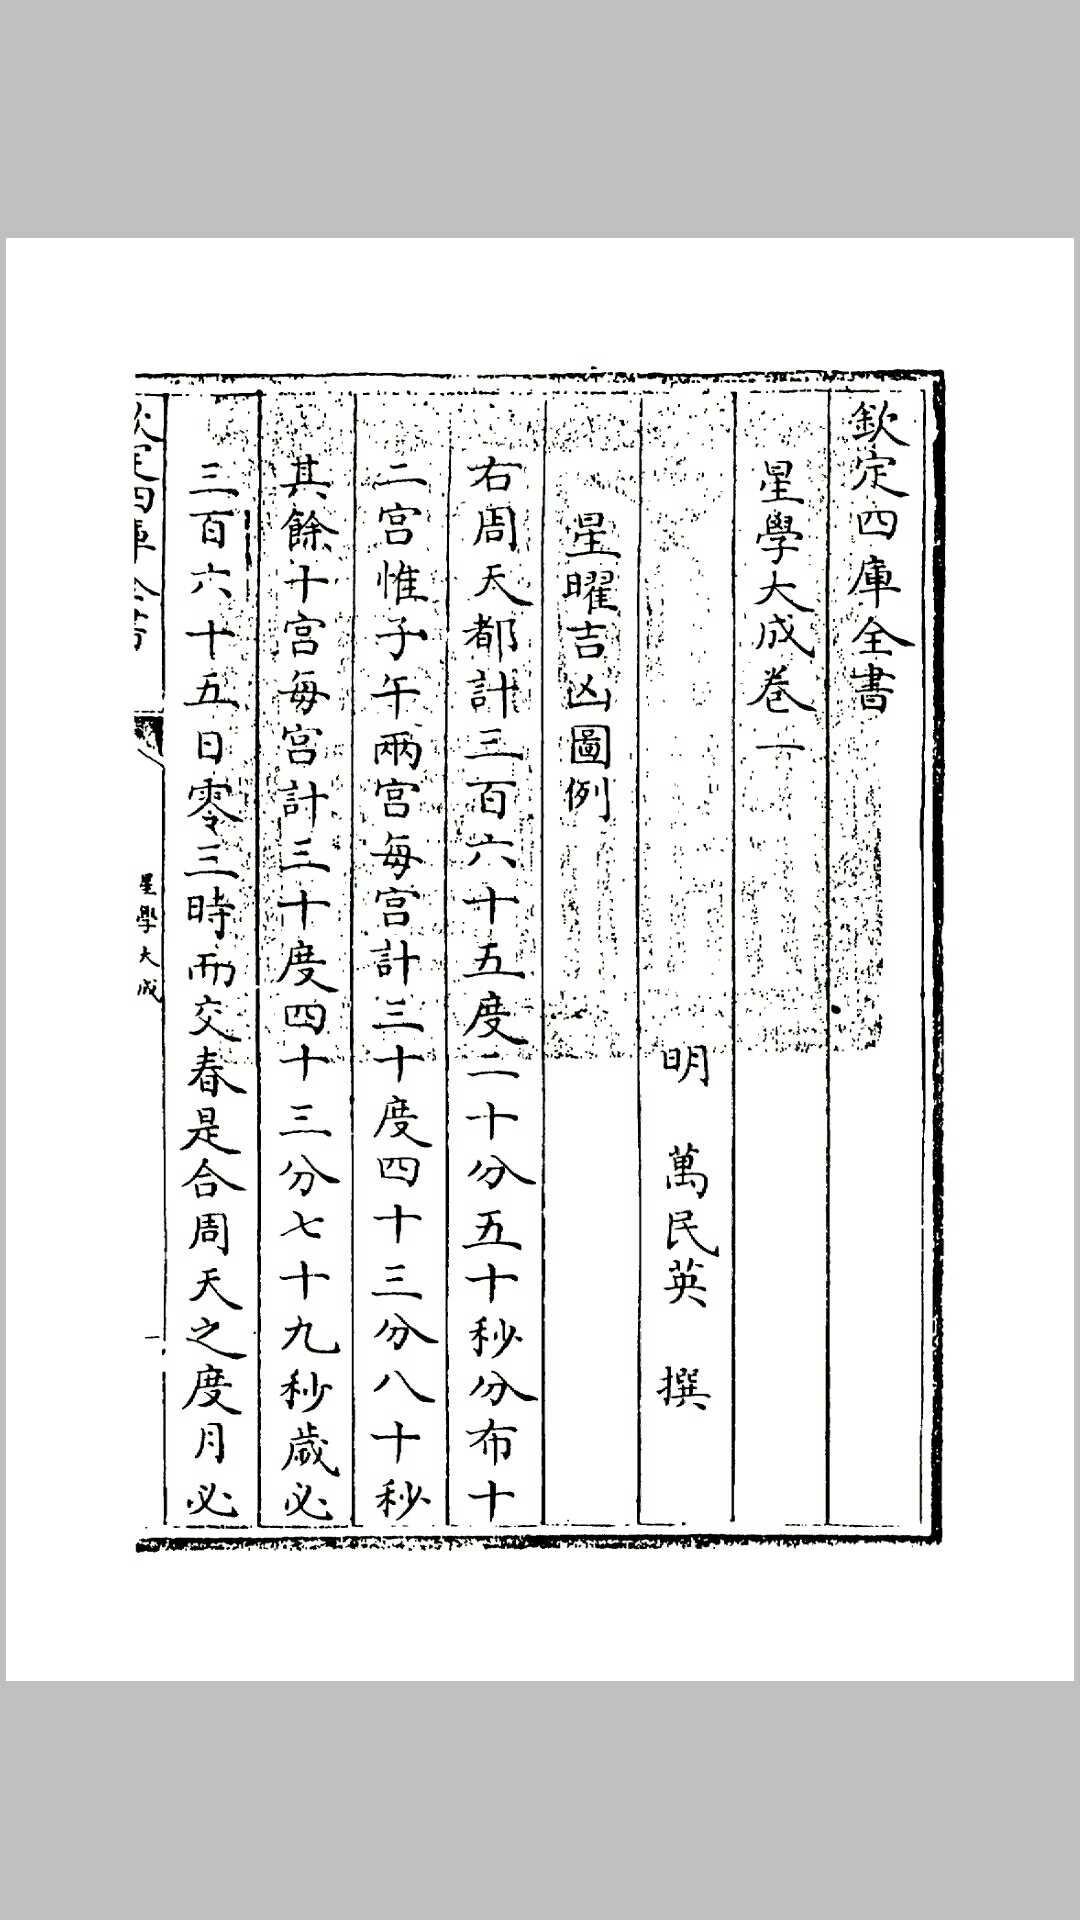 欽定四庫全書
星學大成卷一
明 萬民英 撰
星曜吉凶圖例
右周天都計三百六十五度二十分五十秒分布十
二宫惟子午兩宫每宫計三十度四十三分八十秒
其餘十宫每宫計三十度四十三分七十九秒歲必
三百六十五日零三時而交春是合周天之度月必
欽定四庫全書
星學大成
一